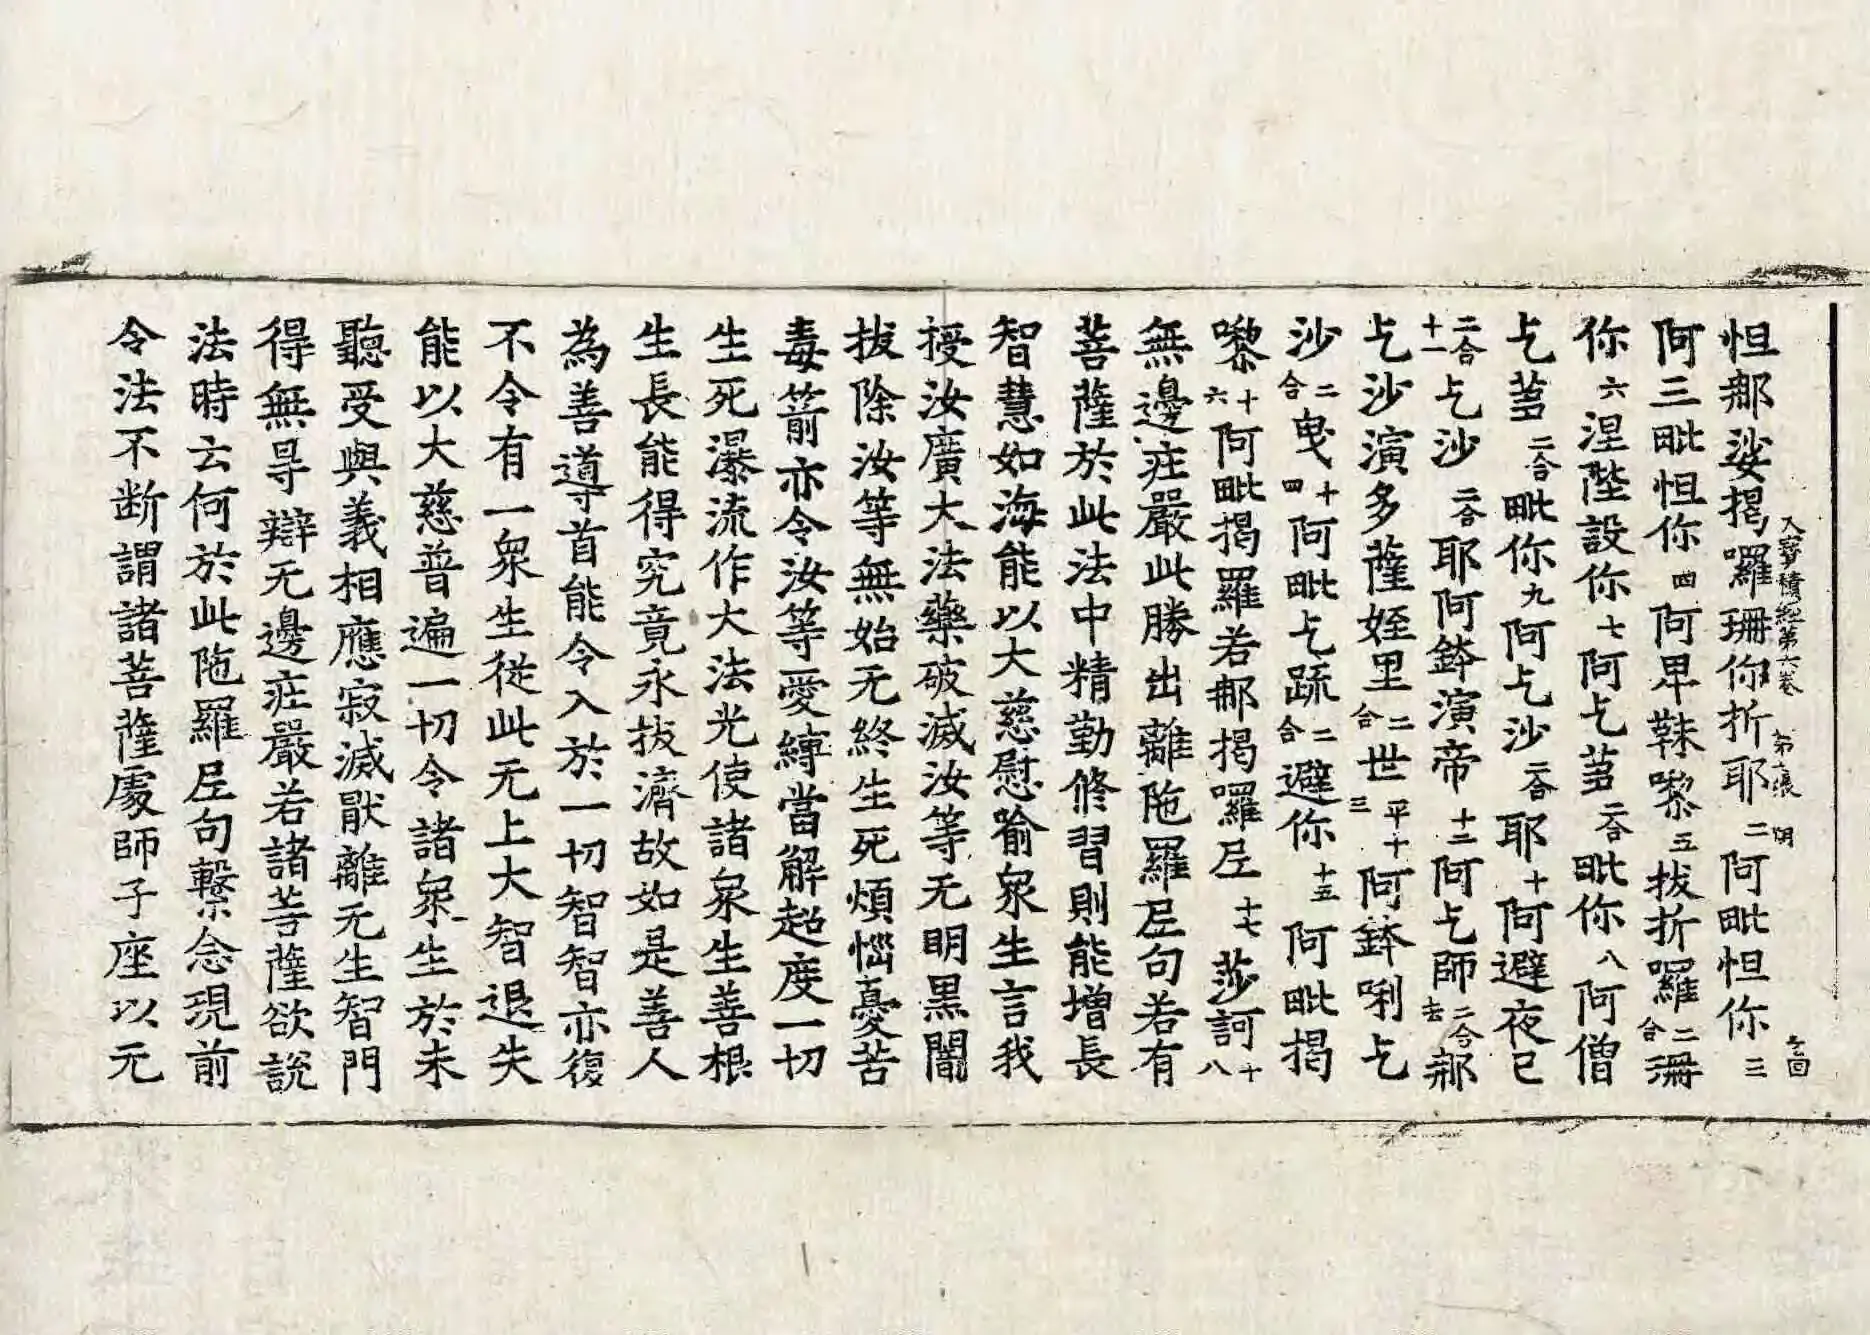 大寶積經第六卷 第二張 悃
怛鄁娑揭囉珊你折耶二阿毗怛你三
阿三毗怛你四阿卑靺嚟五拔折羅二合珊
你六涅陛設你七阿乞蒭二合毗你八阿僧
乞蒭二合毗你九阿乞沙二合耶十阿避夜已
二合十一乞沙二合耶阿鉢演帝十二阿乞師二合去鄁
乞沙演多薩姪里二合世平十三阿鉢唎乞
沙二合曳十四阿毗乞䟽二合避你十五阿毗揭
嚟十六阿毗揭羅若鄁揭囉𡰱十七莎訶十八
無邊㽵嚴此勝出離陁羅𡰱句若有
菩薩於此法中精勤修習則能增長
智慧如海能以大慈慰喻衆生言我
授汝廣大法藥破滅汝等无明黑闇
拔除汝等無始无終生死煩惱憂苦
毒箭亦令汝等愛縛當解超度一切
生死瀑流作大法光使諸衆生善根
生長能得究竟永拔濟故如是善人
為善導首能令入於一切智智亦復
不令有一衆生從此无上大智退失
能以大慈普遍一切令諸衆生於未
聽受與義相應寂滅猒離无生智門
得無㝵辯无邊㽵嚴若諸菩薩欲說
法時云何於此陁羅𡰱句繫念現前
令法不断謂諸菩薩處師子座以元